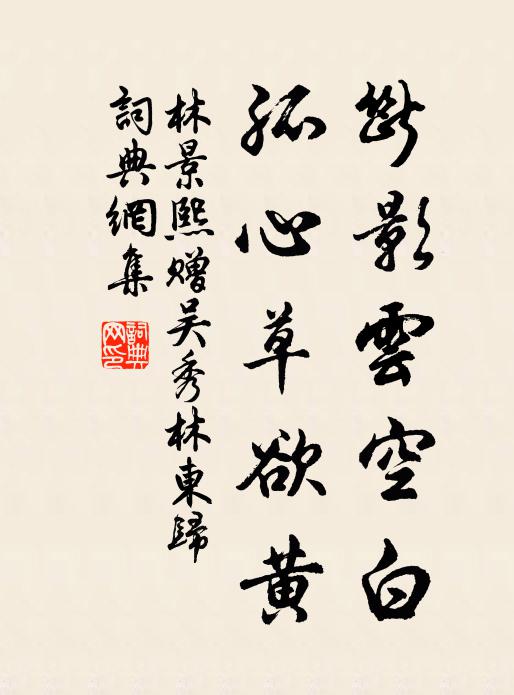 斷影雲空白
孤心草欲黃
林景熙贈吳秀林東歸
詞典網集
詞典網印